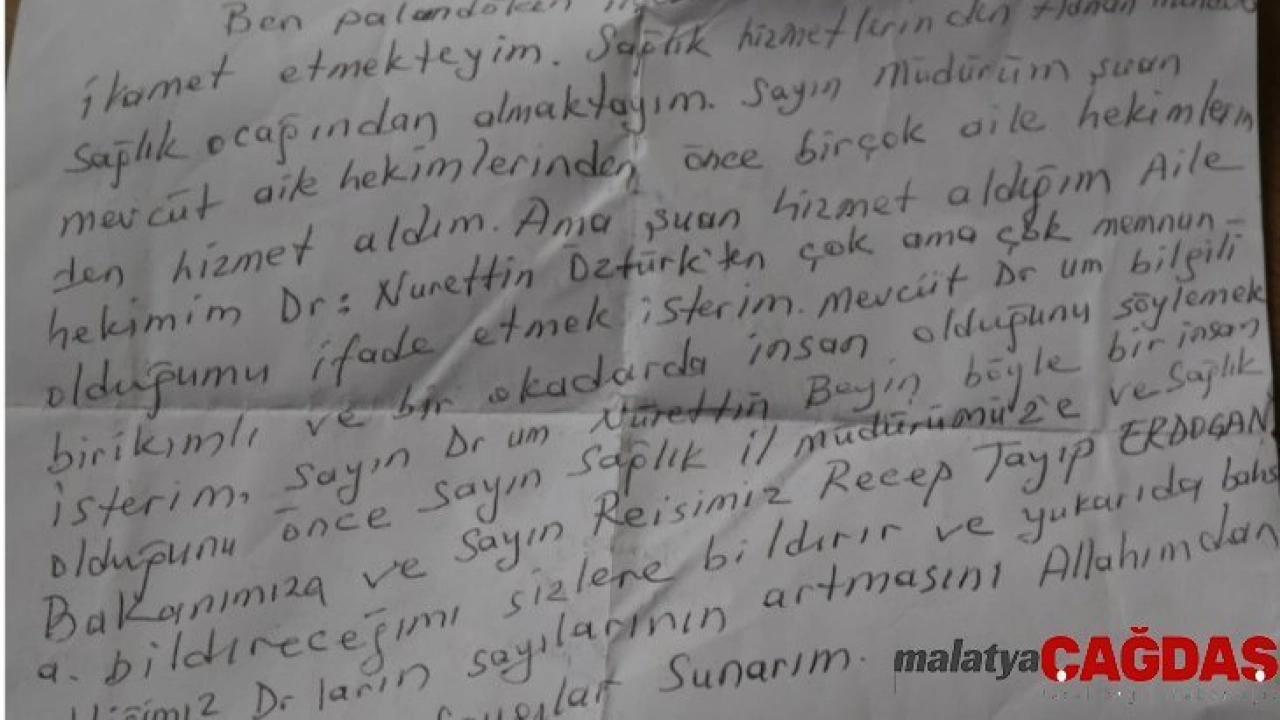 Ben palandöken
ikamet etmekteyim. Sağlık hizmetlerinden
Sağlık ocağından almaktayım. Sayın Müdürüm şuan
mevcüt aile hekimlerinden önce birçok aile hekimlerin
den hizmet aldım. Ama şuan hizmet aldığım Aile
hekimim Dr: Nurettin Öztürk'ten çok ama çok memnun-
olduğumu ifade etmek isterim. Mevcüt Dr um bilgili
birikimli ve bir okadarda insan olduğunu söylemek
isterim. Sayın Dr um Nürettin Beyin böyle bir insan
olduğunu önce sayın Sağlık il müdürümüz'e ve Sağlık
Bakanımıza ve Sayın Reisimiz Recep Tayip ERDOĞAN
a. bildireceğimi sizlere bildirir ve yukarıda bahs
Dr ların sayılarının artmasını Allahımdan
Sunarım.
malatya ÇAĞDAŞ